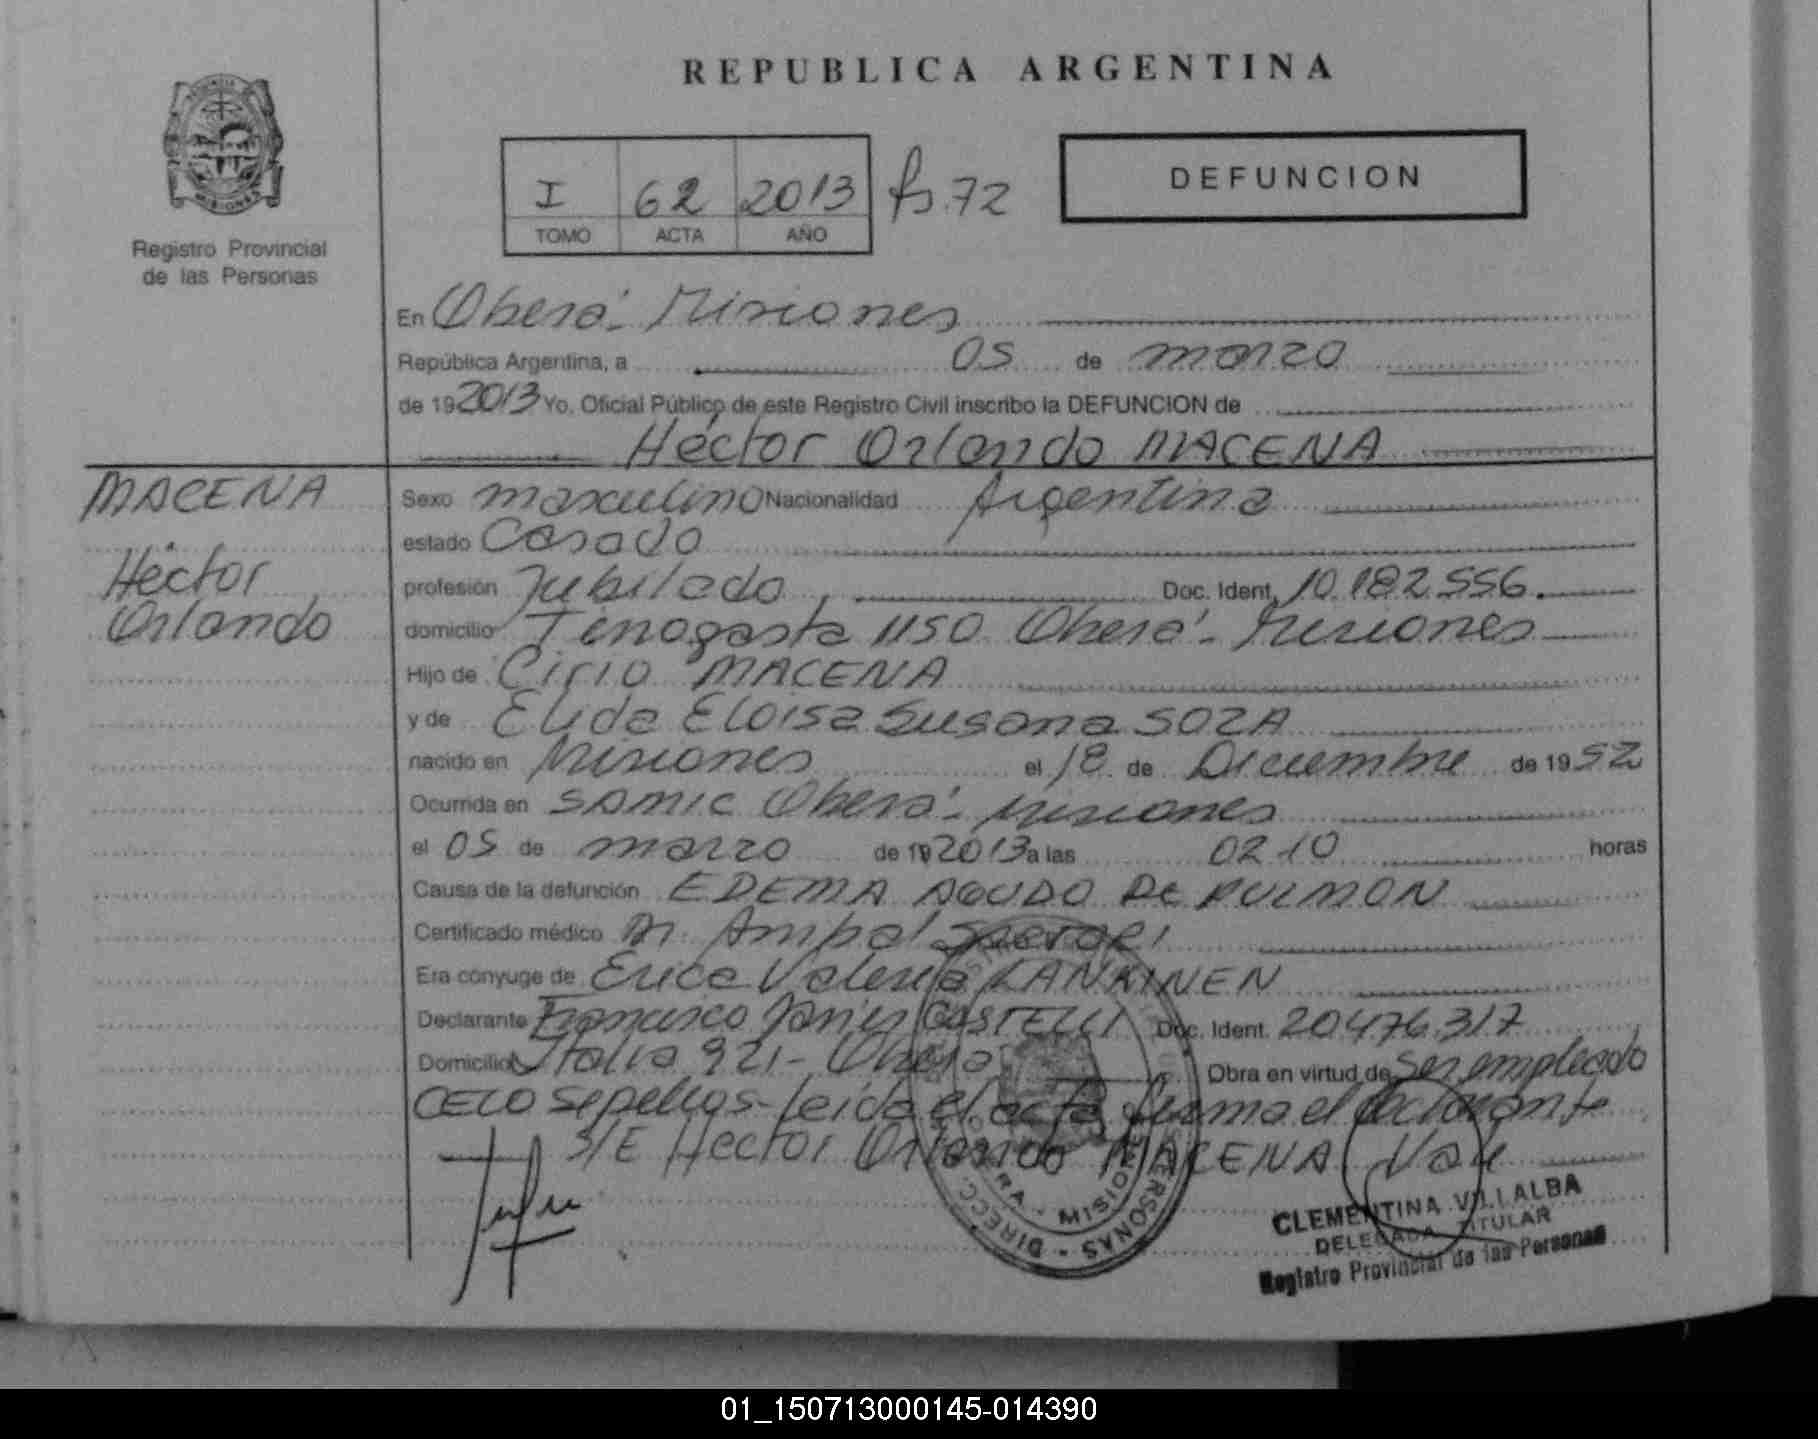 REPUBLICA ARGENTINA
MISIONES
Registro Provincial
de las Personas
I 62 2013 fs. 72
TOMO ACTA AÑO
DEFUNCION
En Oberá - Misiones
República Argentina, a 05 de marzo
de 192013 Yo, Oficial Público de este Registro Civil inscribo la DEFUNCION de
Héctor Orlando MACENA
MACENA
Héctor
Orlando
Sexo masculino Nacionalidad Argentina
estado Casado
profesión Jubilado Doc. Ident. 10.182.556.
domicilio Tinogasta 1150 Oberá - Misiones
Hijo de Cirio MACENA
y de Elida Eloisa Susana SOZA
nacido en Misiones el 18 de Diciembre de 1952
Ocurrida en SAMIC Oberá - Misiones
el 05 de marzo de 192013 a las 02 10 horas
Causa de la defunción EDEMA AGUDO DE PULMON
Certificado médico Dr.
Era cónyuge de Erica Valeria LANKINEN
Declarante Francisco Javier Doc. Ident. 20.476.317
Domicilio Italia 921 - Oberá Obra en virtud de ser empleado
CELO Sepelios - leída el acta firma el declarante
S/E Hector Orlando MACENA Vale
DIRECC. PERSONAS - MISIONES
CLEMENTINA VILLALBA
DELEGADA TITULAR
Registro Provincial de las Personas
01_150713000145-014390